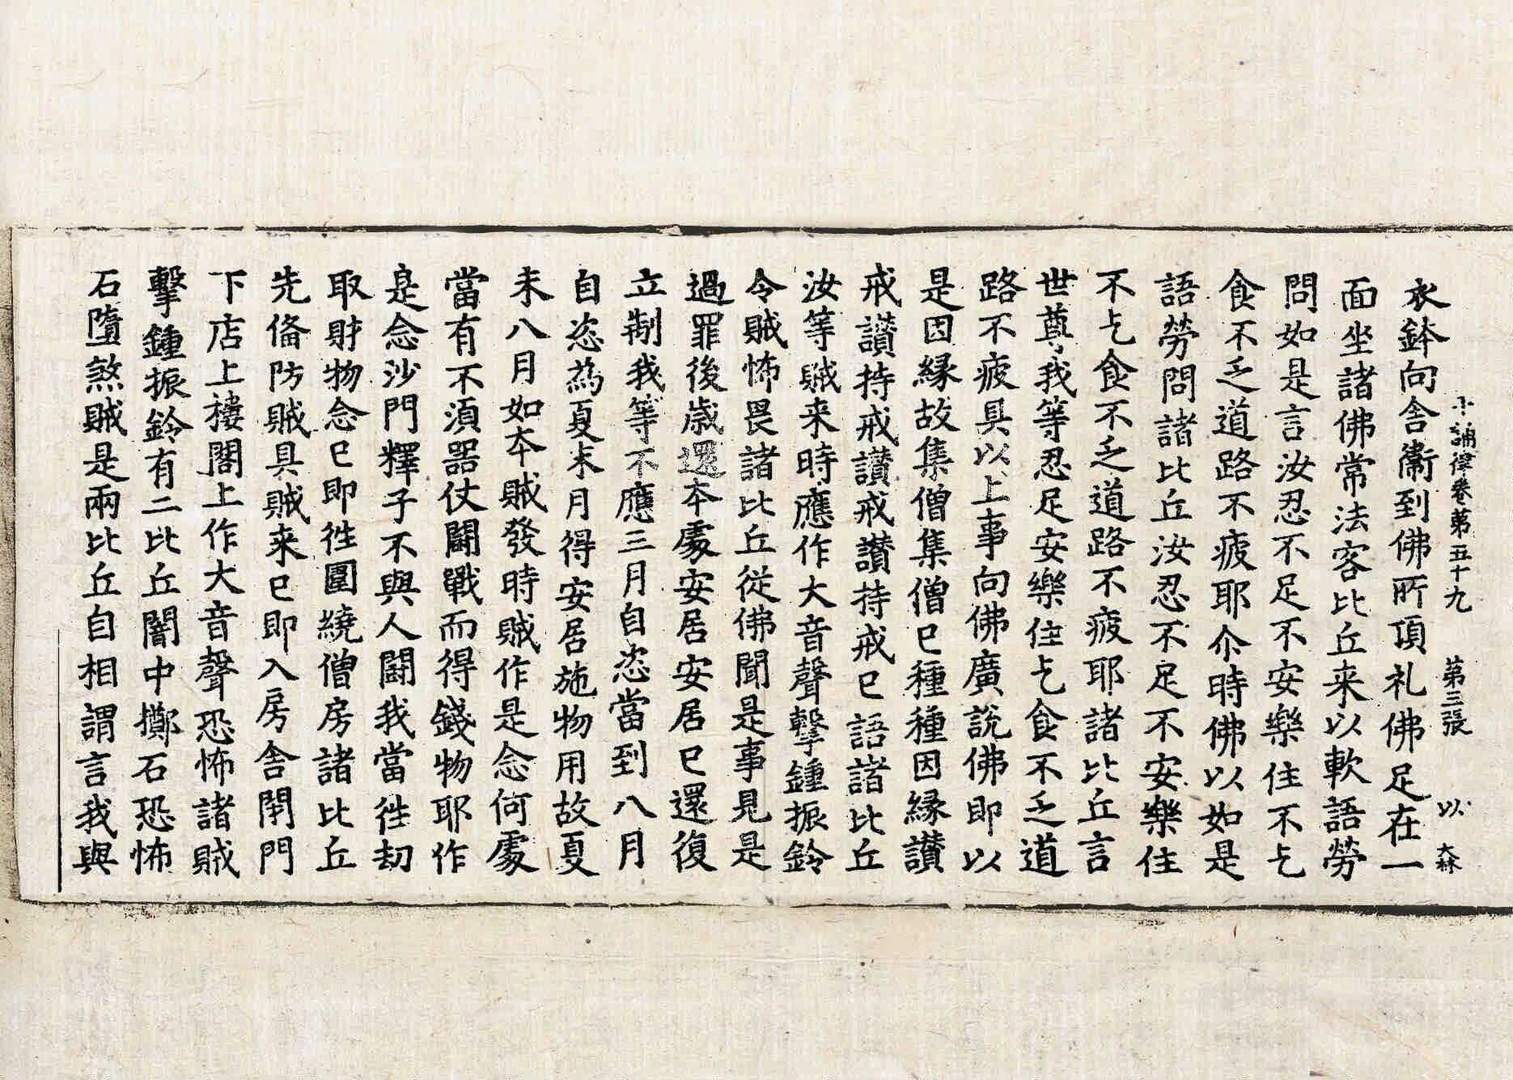 十誦律卷第五十九　第三張　以　大林
衣鉢向舍衛到佛所頂礼佛足在一
面坐諸佛常法客比丘来以軟語勞
問如是言汝忍不足不安樂住不乞
食不乏道路不疲耶尒時佛以如是
語勞問諸比丘汝忍不足不安樂住
不乞食不乏道路不疲耶諸比丘言
世尊我等忍足安樂住乞食不乏道
路不疲具以上事向佛廣說佛即以
是因縁故集僧集僧已種種因縁讃
戒讃持戒讃戒讃持戒已語諸比丘
汝等賊来時應作大音聲擊鍾振鈴
令賊怖畏諸比丘從佛聞是事見是
過罪後歳還本處安居安居已還復
立制我等不應三月自恣當到八月
自恣為夏末月得安居施物用故夏
末八月如本賊發時賊作是念何處
當有不須器仗鬪戰而得錢物耶作
是念沙門釋子不與人鬪我當徃劫
取財物念已即徃圍繞僧房諸比丘
先俻防賊具賊来已即入房舍閇門
下店上樓閣上作大音聲恐怖諸賊
擊鍾振鈴有二比丘闇中擲石恐怖
石墮煞賊是兩比丘自相謂言我與